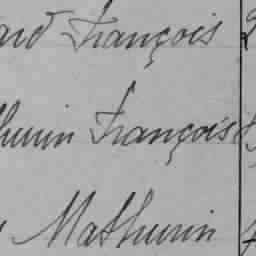 François
thurin François
Mathurin